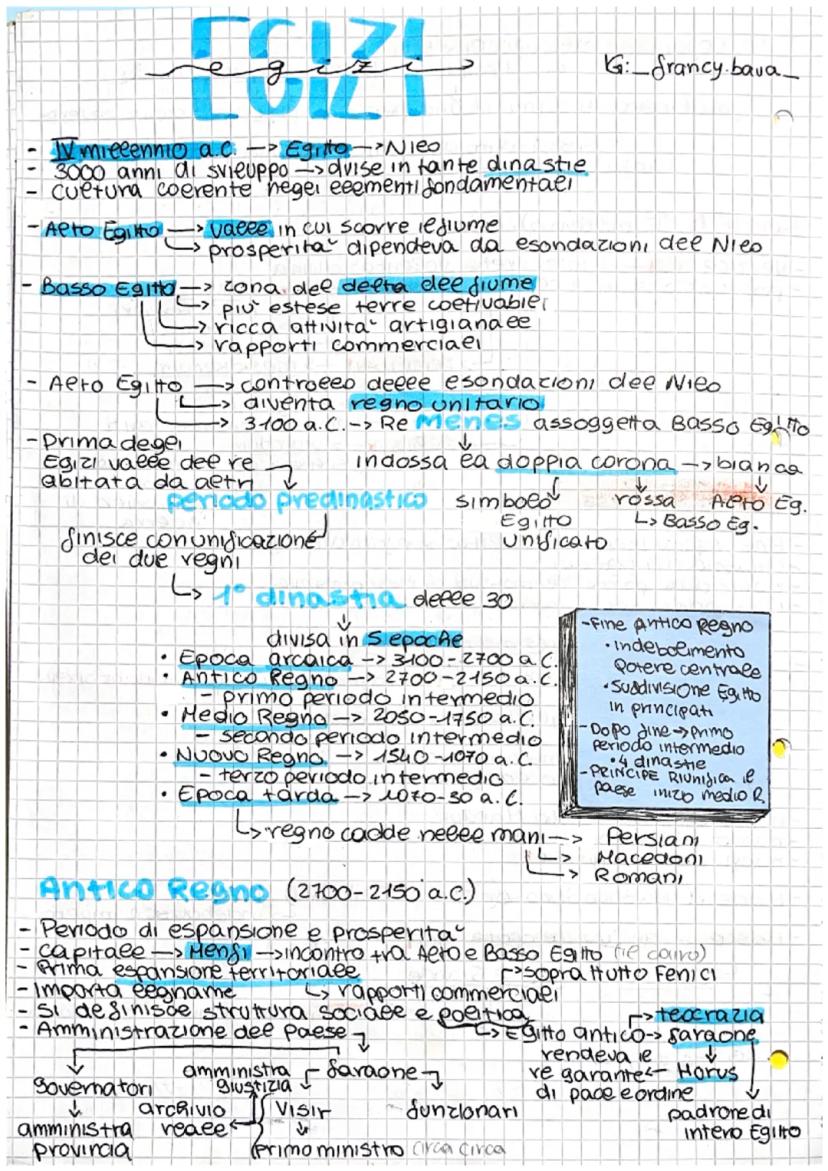 EGIZI
egizi
IG: _francy.bava_
- IV millennio a.C. → Egitto → Nilo
- 3000 anni di sviluppo → divise in tante dinastie
- cultura coerente negli elementi fondamentali
- Alto Egitto → valle in cui scorre il fiume
↳ prosperità dipendeva da esondazioni del Nilo
- Basso Egitto → zona del delta del fiume
↳ più estese terre coltivabili
↳ ricca attività artigianale
↳ rapporti commerciali
- Alto Egitto → controllo delle esondazioni del Nilo
↳ diventa regno unitario
↳ 3100 a.C. → Re Menes assoggetta Basso Egitto
↓
indossa la doppia corona → bianca
simbolo Egitto unificato
rossa
↳ Basso Eg.
Alto Eg.
- Prima degli
Egizi valle del re
abitata da altri
periodo predinastico
finisce con unificazione
dei due regni
↳ 1° dinastia delle 30
↓
divisa in 5 epoche
• Epoca arcaica → 3100-2700 a.C.
• Antico Regno → 2700-2150 a.C.
- primo periodo intermedio
• Medio Regno → 2050-1750 a.C.
- secondo periodo intermedio
• Nuovo Regno → 1540-1070 a.C.
- terzo periodo intermedio
• Epoca tarda → 1070-30 a.C.
↳ regno cadde nelle mani → Persiani
↳ Macedoni
↳ Romani
- Fine Antico Regno
• indebolimento
potere centrale
• suddivisione Egitto
in principati
- Dopo fine → primo
periodo intermedio
• 4 dinastie
- PRINCIPE RIUNIFICA il
paese inizio medio R.
Antico Regno (2700-2150 a.C.)
- Periodo di espansione e prosperità
- capitale → Menfi → incontro tra Alto e Basso Egitto (il cairo)
- Prima espansione territoriale
↱ soprattutto Fenici
- Importa legname
↳ rapporti commerciali
- Si definisce struttura sociale e politica
- Amministrazione del paese
↳ Egitto antico → faraone
↱ teocrazia
rendeva il
re garante ← Horus
di pace e ordine
padrone di
intero Egitto
faraone
governatori
↓
amministra
provincia
amministra
giustizia
archivio
reale
Visir
↓
primo ministro circa circa
funzionari